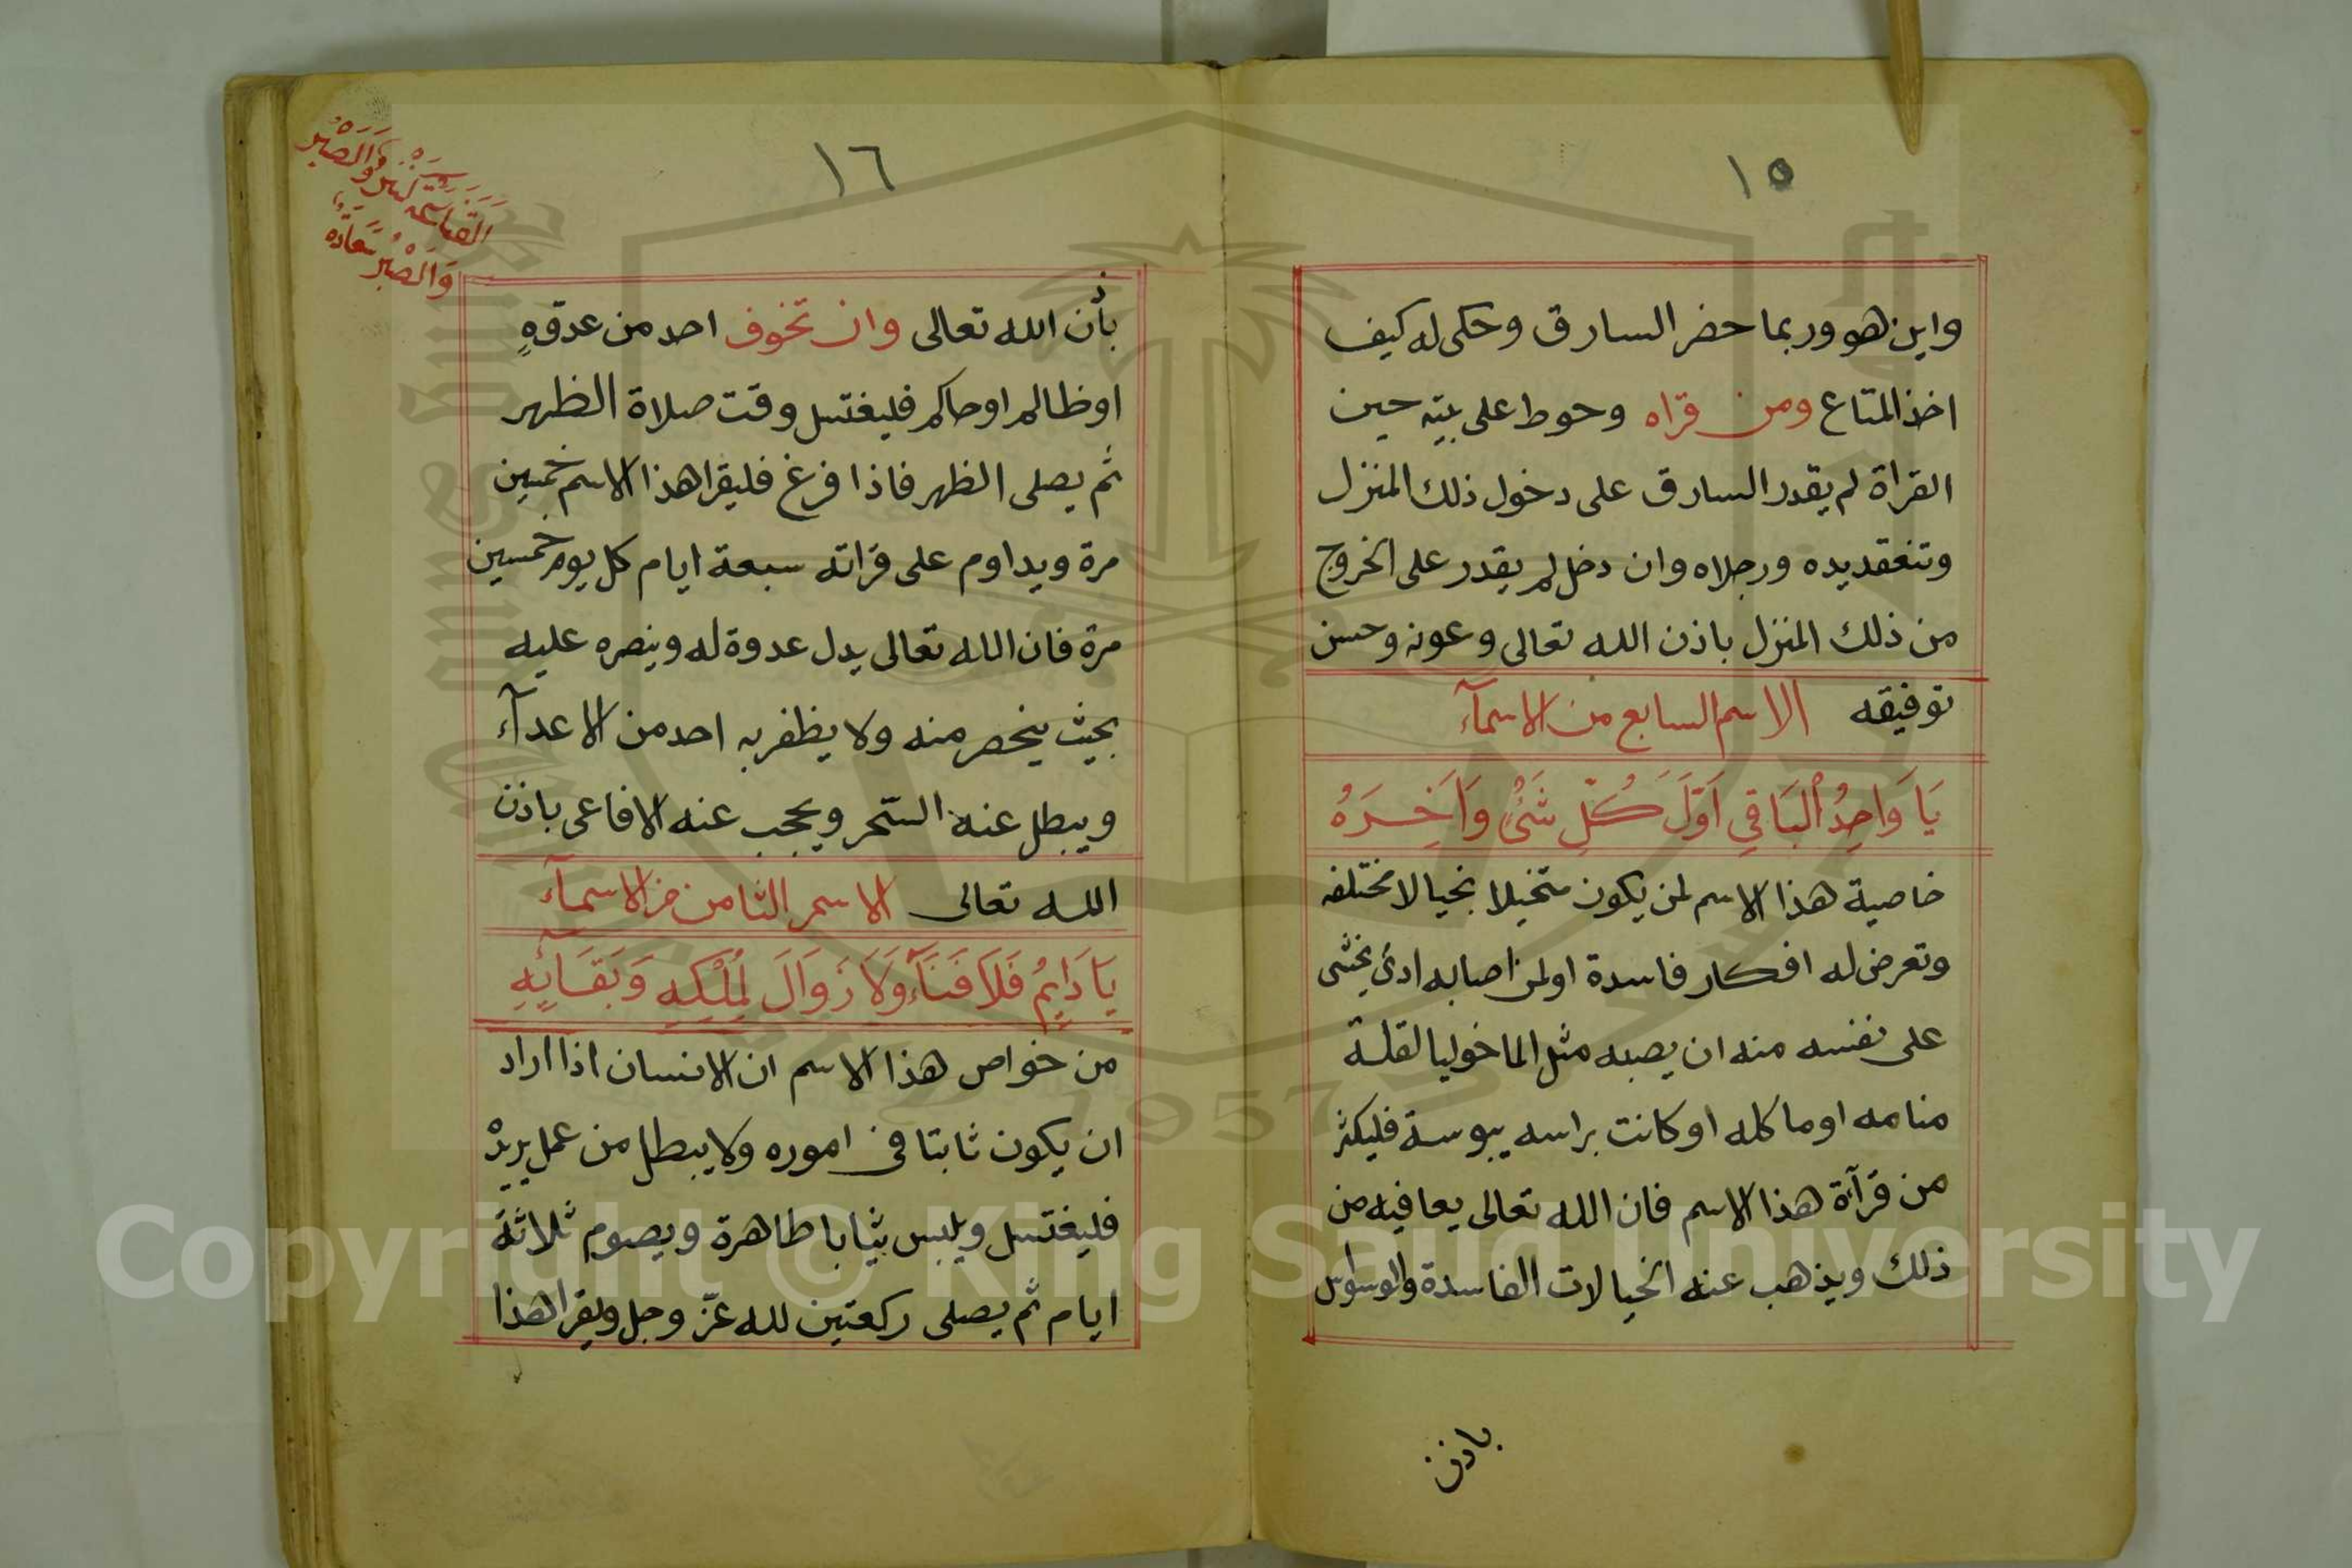 ١٥
واين هو وربما حضر السارق وحكى له كيف
اخذ المتاع ومن قراه وحوط على بيته حين
القراة لم يقدر السارق على دخول ذلك المنزل
وتنعقد يده ورجلاه وان دخل لم يقدر على الخروج
من ذلك المنزل باذن الله تعالى وعونه وحسن
توفيقه الاسم السابع من الاسمآء
يَا وَاحِدُ الْبَاقِي اَوَّلَ كُلِّ شَئٍ وَاَخِرَهُ
خاصية هذا الاسم لمن يكون متخيلا بخيالات مختلفه
وتعرض له افكار فاسدة اولمن اصابه اذى يخشى
على نفسه منه ان يصبه مثل الماخوليا لقلة
منامه او ماكله او كانت براسه يبوسة فليكثر
من قرآءة هذا الاسم فان الله تعالى يعافيه من
ذلك ويذهب عنه الخيالات الفاسدة والوسواس
باذن
١٦
بأذن الله تعالى وان تخوف احد من عدوه
اوظالم اوحاكم فليغتسل وقت صلاة الظهر
ثم يصلى الظهر فاذا فرغ فليقرا هذا الاسم خمسين
مرة ويداوم على قراته سبعة ايام كل يوم خمسين
مرة فان الله تعالى يدل عدوة له وينصره عليه
بحيث ينحصر منه ولا يظفر به احد من الاعدآء
ويبطل عنه السّحر ويحجب عنه الافاعى باذن
الله تعالى الاسم الثامن من الاسمآء
يَا دَايِمُ فَلَا فَنَآءَ وَلَا زَوَالَ لِمُلْكِهِ وَبَقَآئِهِ
من خواص هذا الاسم ان الانسان اذا اراد
ان يكون ثابتا فى اموره ولا يبطل من عمل يريد
فليغتسل ويلبس ثيابا طاهرة ويصوم ثلاثة
ايام ثم يصلى ركعتين لله عزّ وجل ويقرا هذا
وَالصَبْرُ
القناعة كنز
وَالصَبْرُ سَعَادَة